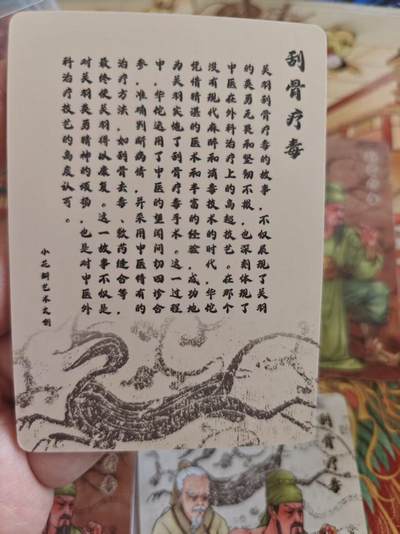 刮骨疗毒
关羽刮骨疗毒的故事，不仅展现了关羽
的英勇无畏和坚韧不拔，也深刻体现了
中医在外科治疗上的高超技艺。在那个
没有现代麻醉和消毒技术的时代，华佗
凭借精湛的医术和丰富的经验，成功地
为关羽实施了刮骨疗毒手术。这一过程
中，华佗运用了中医的望闻问切四诊合
参，准确判断病情，并采用中医特有的
治疗方法，如刮骨去毒、敷药缝合等，
最终使关羽得以康复。这一故事不仅是
对关羽英勇精神的颂扬，也是对中医外
科治疗技艺的高度认可。
艺术文创
刮骨疗毒